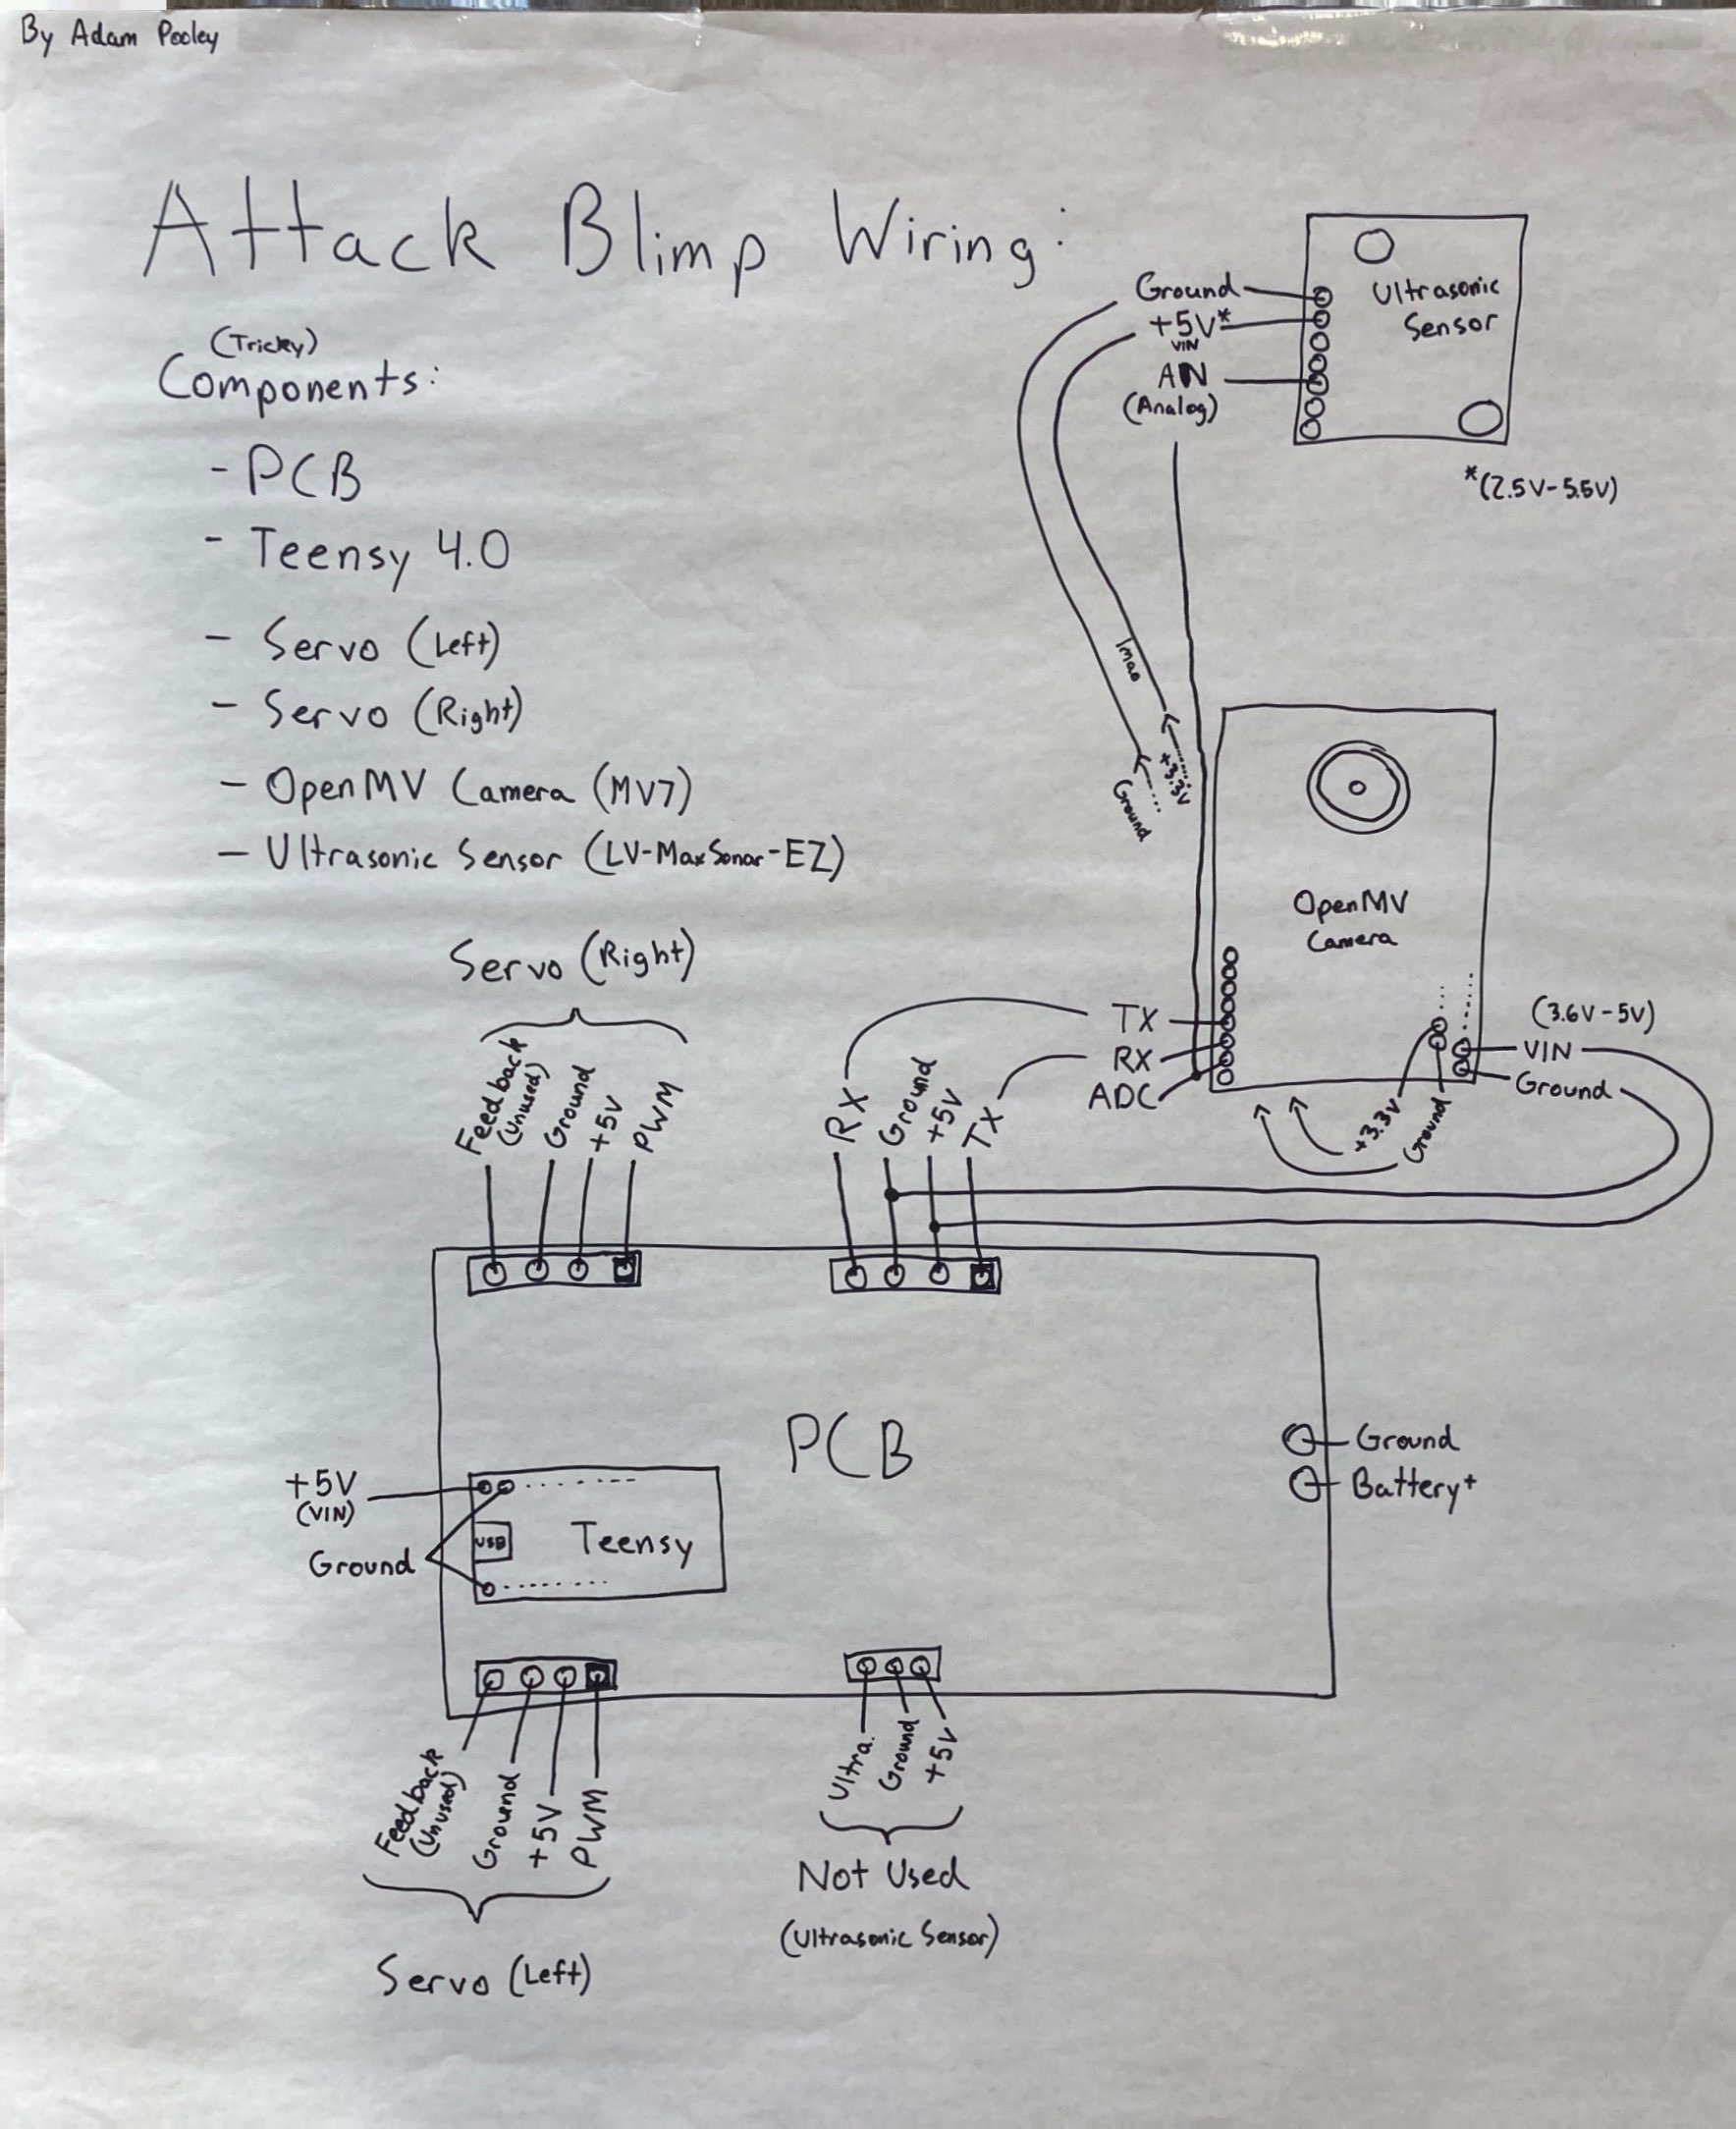 By Adam Pooley
Attack Blimp Wiring:
(Tricky)
Components:
- PCB
- Teensy 4.0
- Servo (Left)
- Servo (Right)
- OpenMV Camera (MV7)
- Ultrasonic Sensor (LV-MaxSonar-EZ)
Ground
+5V*
VIN
AN
(Analog)
Ultrasonic
Sensor
*(2.5V-5.5V)
lmao
+3.3V
Ground
OpenMV
Camera
TX
RX
ADC
(3.6V-5V)
VIN
Ground
+3.3V
Ground
Servo (Right)
Feedback
(Unused)
Ground
+5V
PWM
RX
Ground
+5V
TX
PCB
Ground
Battery+
+5V
(VIN)
Ground
USB
Teensy
Feedback
(Unused)
Ground
+5V
PWM
Servo (Left)
Ultra.
Ground
+5V
Not Used
(Ultrasonic Sensor)